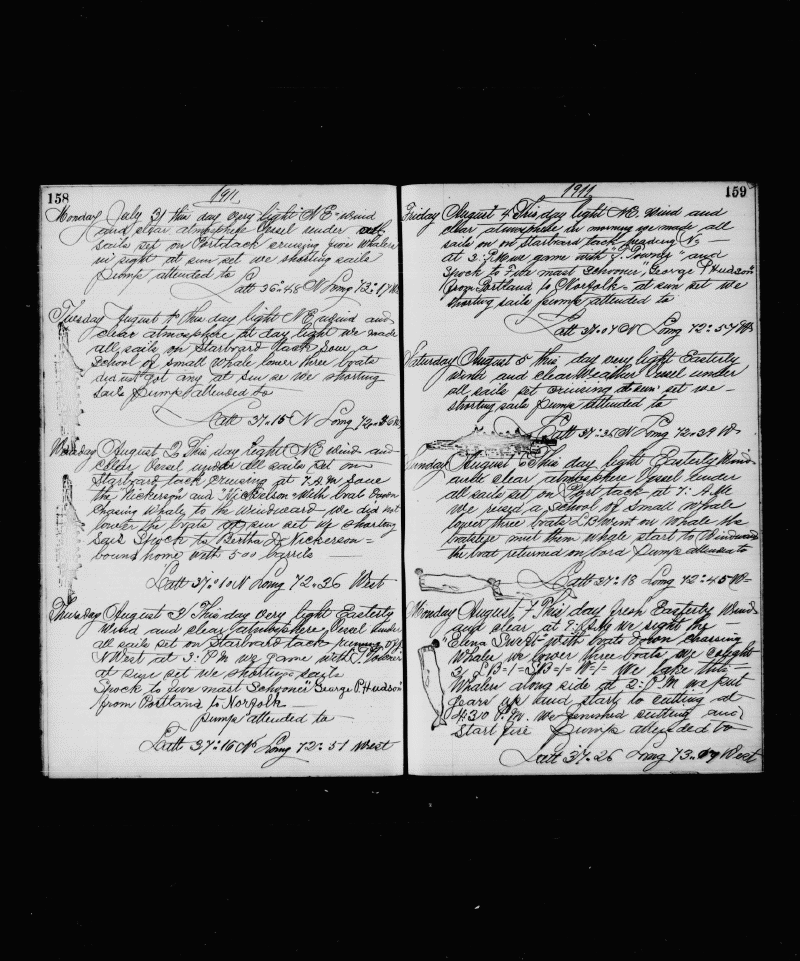 158
1911
Monday July 31 this day very light N E wind
and clear atmosphere vessel under all
sails set on Portstack cruising five Whalers
in sight at sun set we shorting sails
Pump attended to
Latt 36=48 N Long 73=17 W
Tuesday August 1 this day light N E wind and
clear atmosphere at day light we made
all sails on Starboard tack Saw a
School of Small Whale lower three boats
did not got any at sun se we shorting
sails Pump attended to
Latt 37.15 N Long 72. W
August 2 This day light N E wind and
clear vessel under all sails set on
Starboard tack cruising at 7 A M Saue
the Nickerson and Nickelson with boat Down
chasing Whale to the Windward we did not
lower the boats at sun set we shorting
sails Spock to Bertha D Nickerson =
bound home with 500 barrils
Latt 37=10 N Long 72.36 West
Thursday August 3 This day very light Easterly
Wind and clear atmosphere Vessel under
all sails set on Starboard tack running off
N West at 3: P M we game with J. Towner
at sun set we shorting sails
Spock to five mast Schooner "George P. Hudson"
from Portland to Norfolk
Pump attended to
Latt 37:16 N Long 72:51 West
159
1911
Friday August 4 This day light N.E. wind and
clear atmosphere in morning we made all
sails on on Starboard tack heading
at 3: P.M we game with "J. Towner" and
Spock to Five mast Schooner "George P Hudson"
from Portland to Norfolk = at sun set we
shorting sails pump attended to
Latt 37.07 N Long 72:57 W
Saturday August 5 this day very light Easterly
wind and clear Weather Vessel under
all sails set cruising at sun set we
shorting sails Pump attended to
Latt 37=36 N Long 72.39 W
Sunday August 6 This day light Easterly Wind
and clear atmosphere Vessel under
all sails set on Port tack at 7: A.M
We rised a School of Small Whale
lower three boats L B Went on Whale the
met them whale start to Windward
the boat returned on bord Pump attended to
Latt 37=18 Long 72=45 W
Monday August 7 This day fresh Easterly Wind
and clear at A M we sight the
with boats down chasing
Whale we lower three boats we caught
3, L B=1= S B=1= W=1= We take the
Whales along side at 2: P M we put
gears up and start to cutting at
4:30 P. M. we finished cutting and
start fire Pump attended to
Latt 37.26 Long 73. West